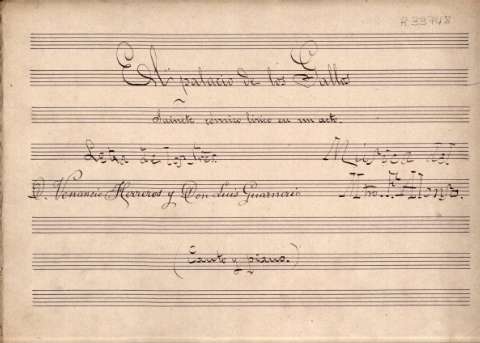 R.33748
El palacio de los Gallos
Sainete cómico lírico en un acto.
Letra de los Sres. Música del
D. Venancio Herreros y Don Luis Guarnerio Mtro. F. Alonso.
(Canto y piano.)